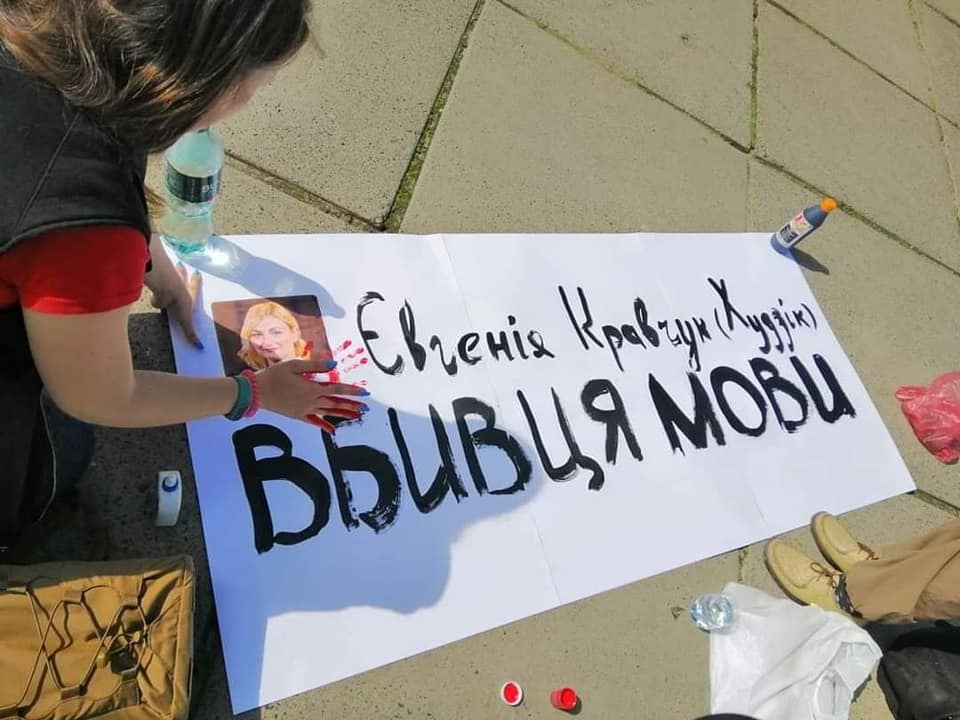 Євгенія Кравчук (Худзік)
ВБИВЦЯ МОВИ